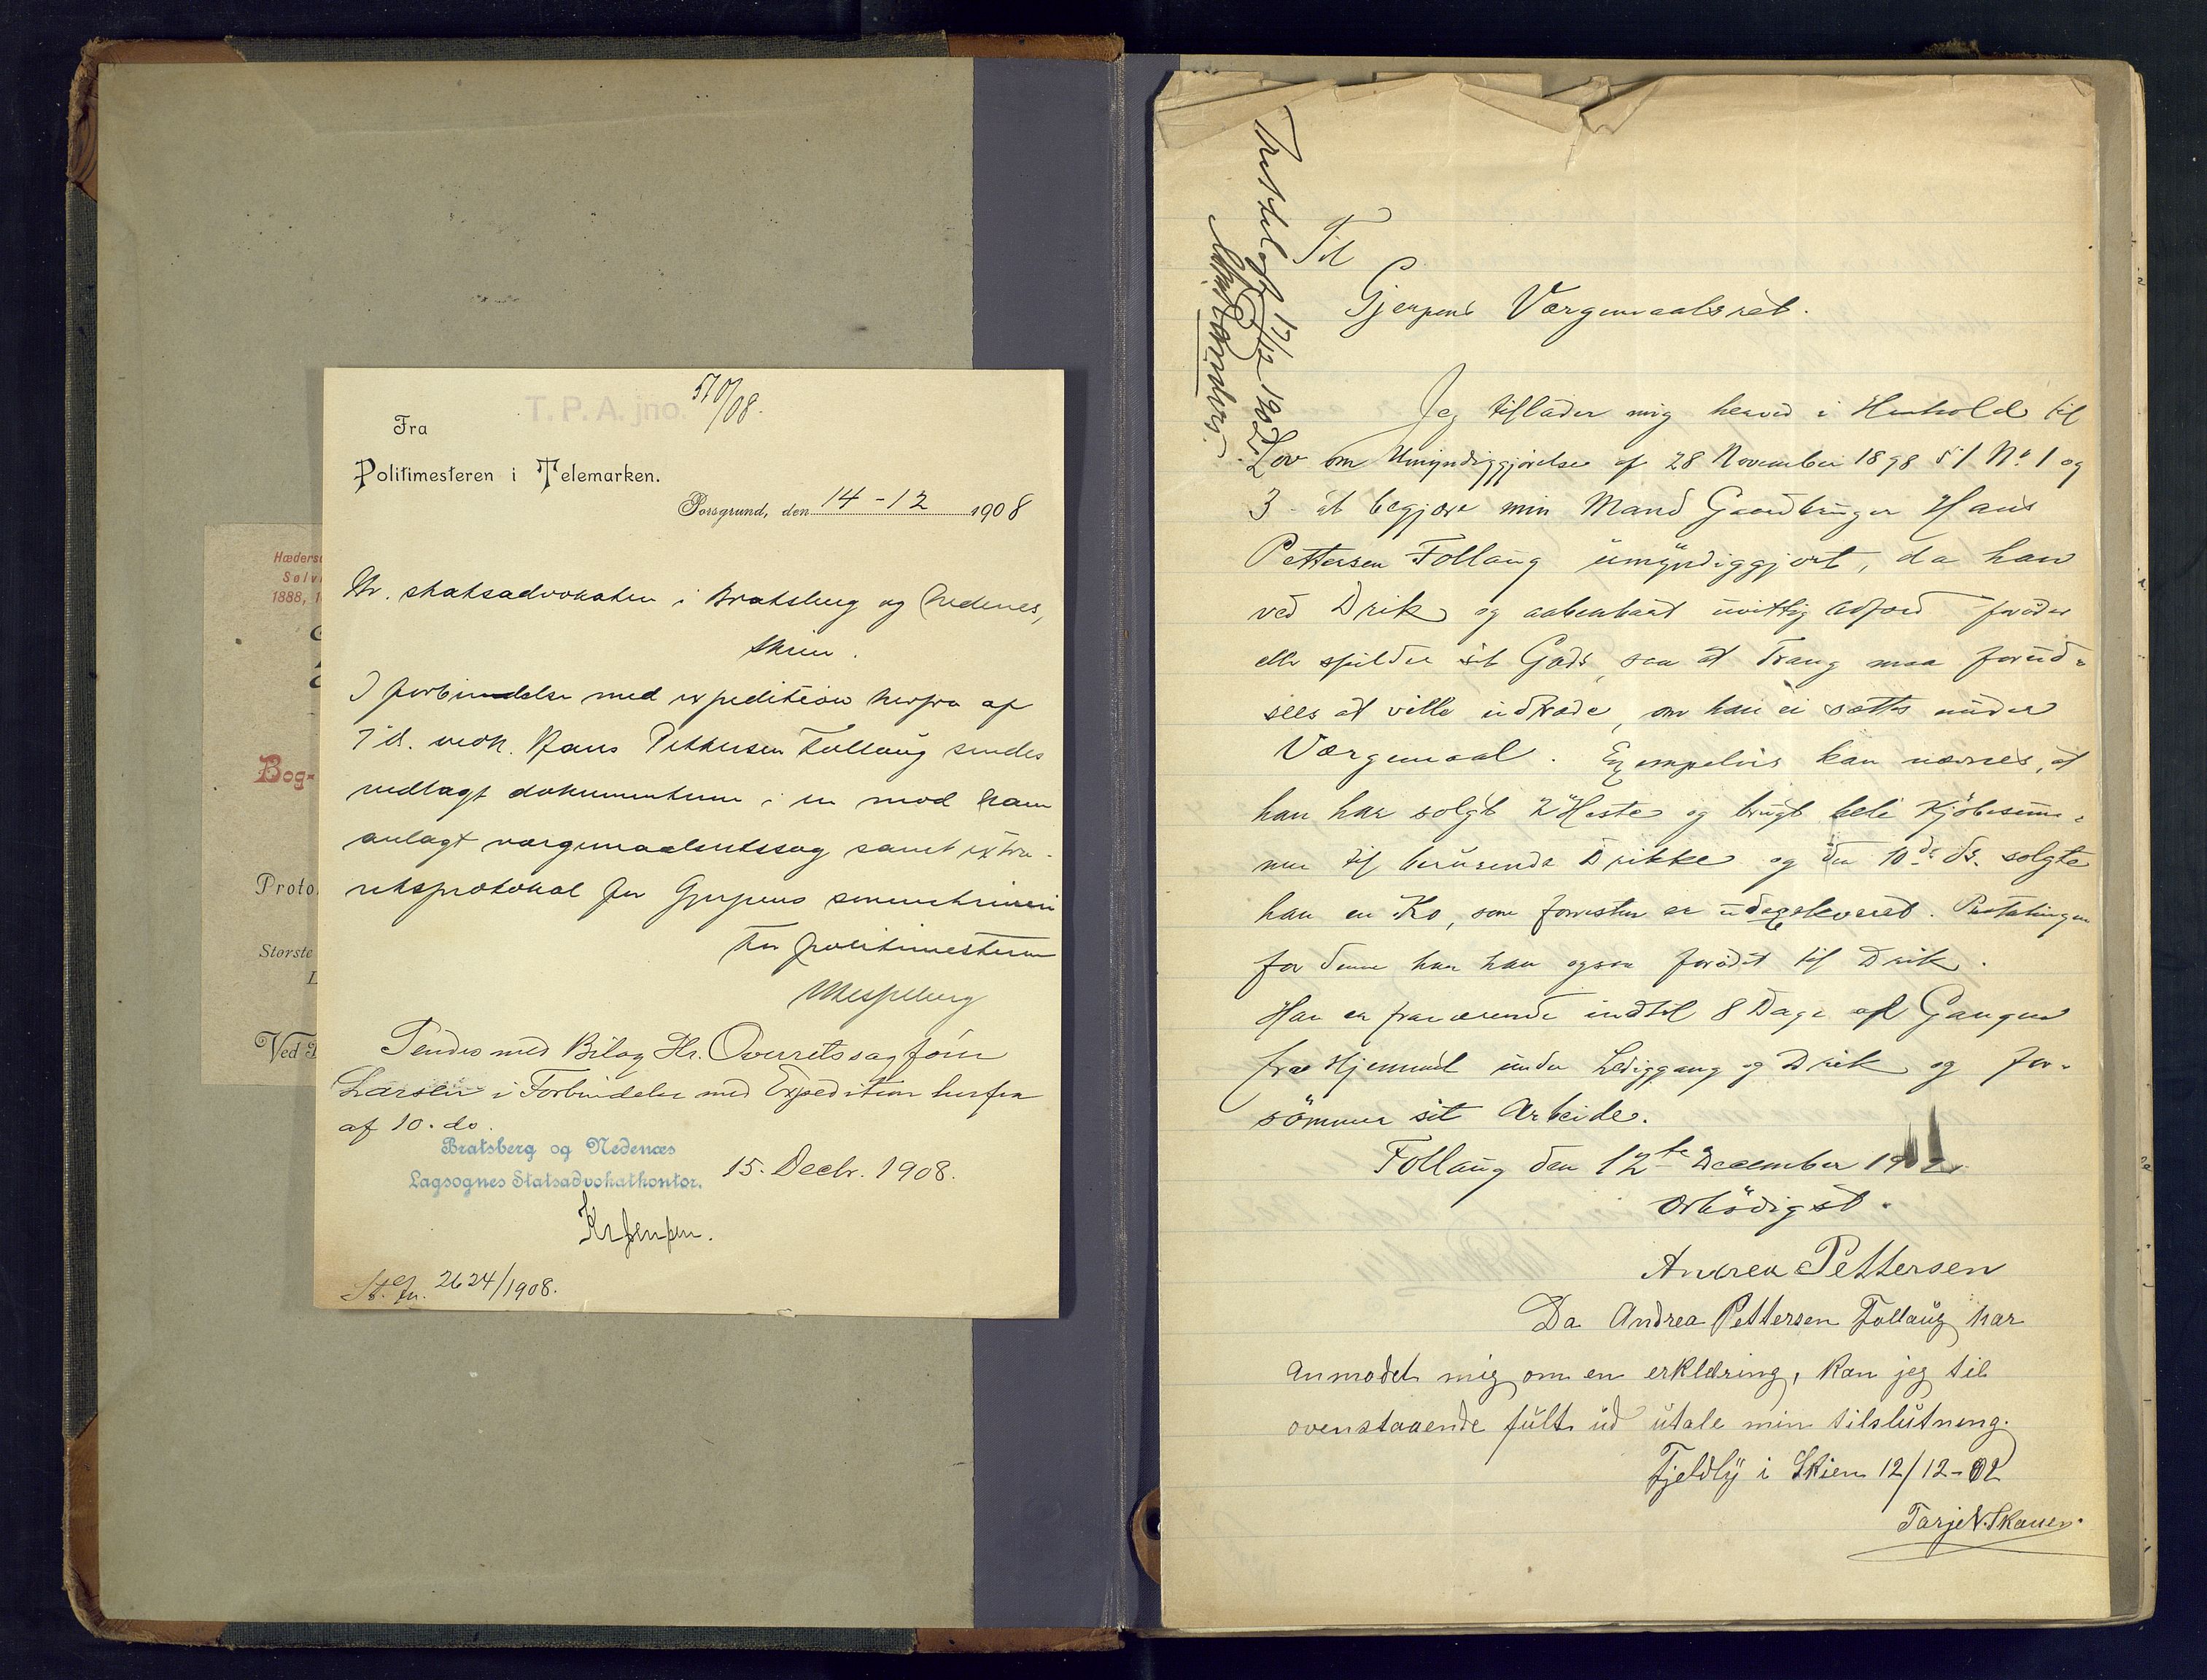 T. P. A. jno. 570/08.
Fra
Politimesteren i Telemarken.
Porsgrund, den 14-12 1908
Hr. statsadvokaten i Bratsberg og Nedenes,
Skien.
I forbindelse med expedition herfra af
7 ds. vedk. Hans Pettersen Follaug sendes
vedlagt dokumenterne i en mod ham
anlagt værgemaalsretssag samt extra-
retsprotokol for Gjerpens sorenskriveri
For politimesteren
Sendes med Bilag Hr. Overretssagfører
Larsen i Forbindelse med Expedition herfra
af 10. ds.
Bratsberg og Nedenæs
Lagsognes Statsadvokatkontor. 15. Decbr. 1908.
St. J. n. 2624/1908.
Hæders
Sølv
1888, 1
Bog-
Proto
Største
L
Ved
17/12 1902
Til
Gjerpens Værgemaalsret.
Jeg tillader mig herved i Henhold til
Lov om Umyndiggjørelse af 28 November 1898 § 1 No 1 og
3 at begjære min Mand Gaardbruger Hans
Pettersen Follaug umyndiggjort, da han
ved Drik og aabenbart uvittig Adfærd forøder
eller spilder sit Gods, saa at Trang maa forud-
sees at ville indtræde, om han ei sættes under
Værgemaal. Exempelvis kan nævnes, at
han har solgt 2 Heste og brugt hele Kjøbesum-
men til berusende Drikke og den 10de ds. solgte
han en Ko, som forresten er udexekveret. Betalingen
for denne har han ogsaa forødt til Drik.
Han er fraværende indtil 8 Dage af Gangen
fra Hjemmet under Lediggang og Drik og for-
sømmer sit Arbeide.
Follaug den 12te December 1902
Ærbødigst.
Andrea Pettersen
Da Andrea Pettersen Follaug har
anmodet mig om en erklæring, kan jeg til
ovenstaaende fult ud utale min tilslutning.
Fjeldly i Skien 12/12-02
Tarje N. Skauen.